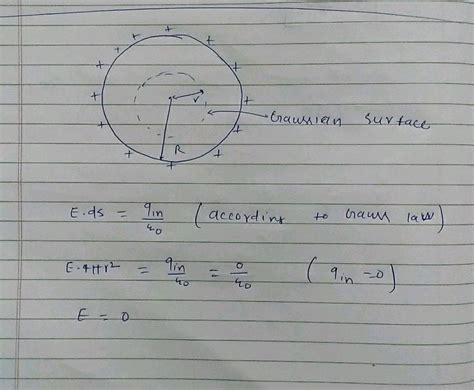 + + + + + + + + + + + + +
r
Gaussian surface
R
E.ds = qin/ε0 (accordint to Gauss law)
E.4πr² = qin/ε0 = 0/ε0 (qin = 0)
E = 0